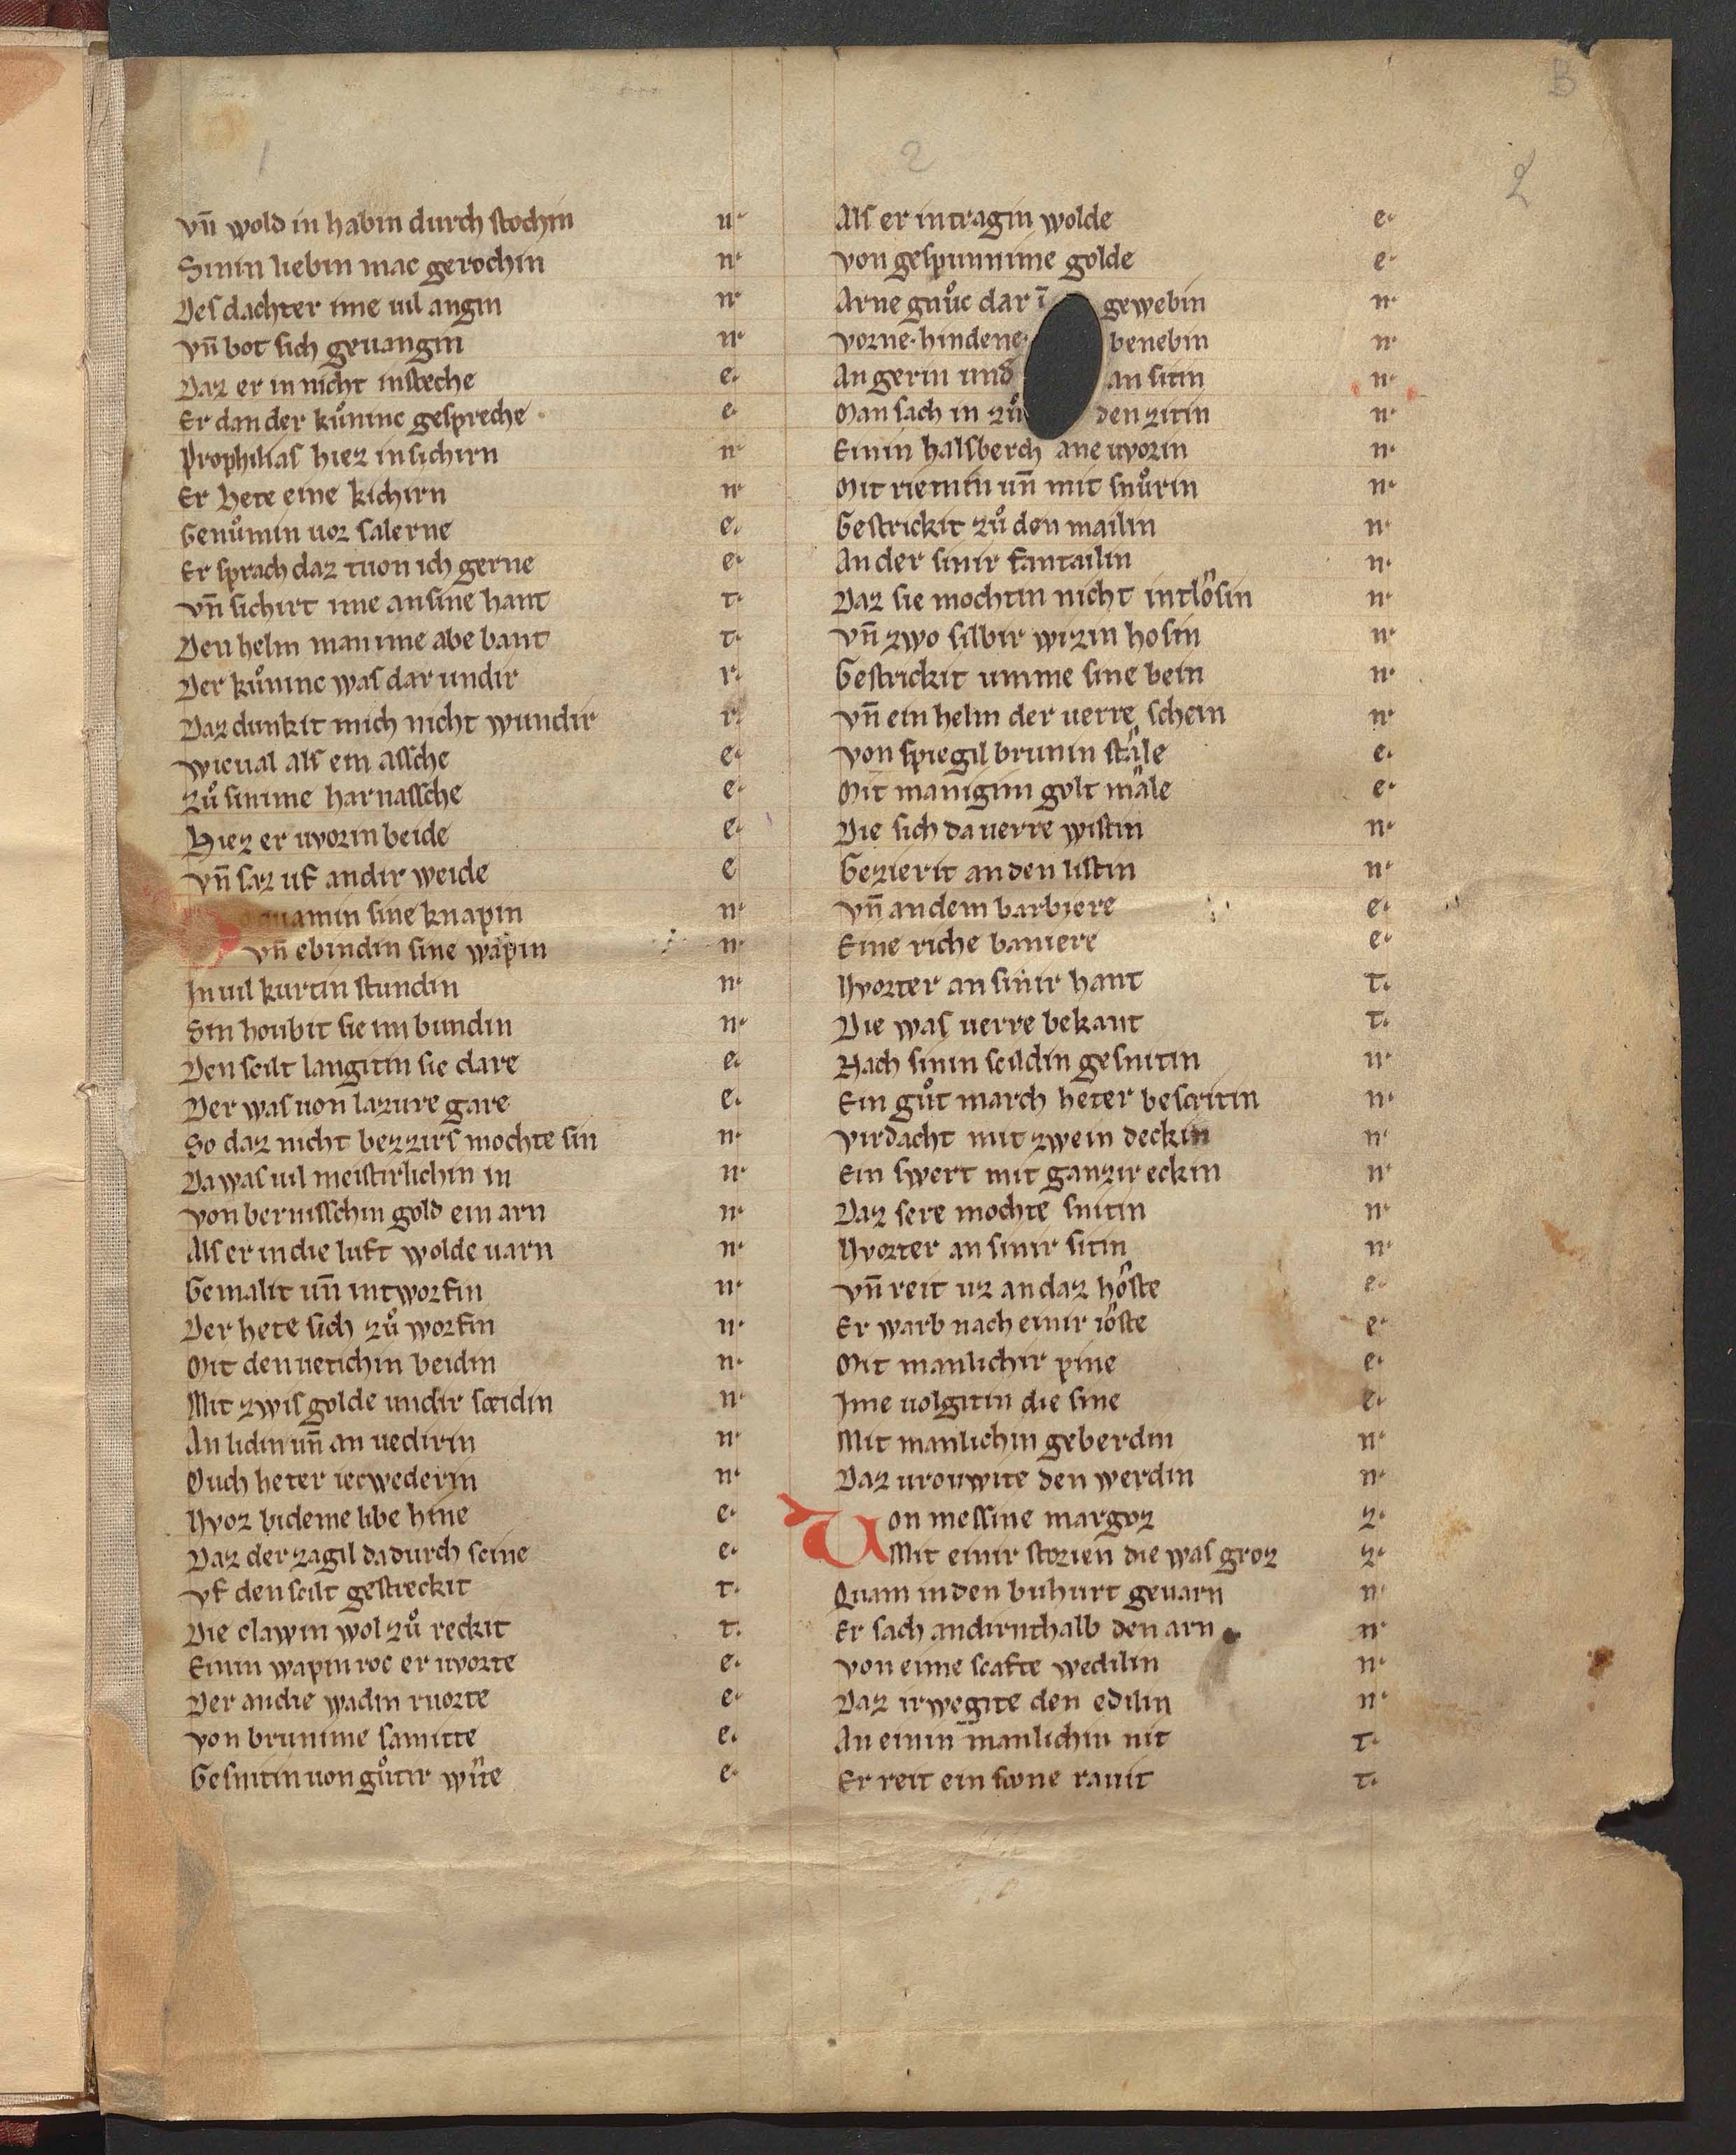 B
1
2
2
vn̄ wold in habin durch stochin n·
Sinin liebin mac gerochin n·
Des dachter ime uil angin n·
vn̄ bot sich geuangin n·
Daz er in nicht insteche e·
Er dan der kuͦninc gespreche e·
Prophilias hiez in sichirn n·
Er hete eine kichirn n·
Genuͦmin uor salerne e·
Er sprach daz tuon ich gerne e·
vn̄ sichirt ime an sine hant t·
Den helm man ime abe bant t·
Der kuͦninc was dar undir r·
Daz dunkit mich nicht wundir r·
wie ual als ein assche e·
zuͦ sinime harnassche e·
Hiez er uvorin beide e·
vn̄ saz uf andir weide e
quamin sine knapin n·
vn̄ ebindin sine wapin n·
In uil kurtin stundin n·
Sin houbit sie im bundin n·
Den scilt langitin sie dare e·
Der was uon lazure gare e·
So daz nicht bezzirs mochte sin n·
Da was uil meistirlichin in n·
von bernisschin gold ein arn n·
Als er in die luft wolde uarn n·
Gemalit un̄ intworfin n·
Der hete sich zuͦ worfin n·
Mit den uetichin beidin n·
Mit zwis golde undir sceidin n·
An lidin un̄ an uedirin n·
Ouch heter iecwederin n·
Uvor bi deme libe hine e·
Daz der zagil da durch scine e·
vf den scilt gestreckit t·
Die clawin wol zuͦ reckit t·
Einin wapin roc er uvorte e·
Der an die wadin ruorte e·
von brunime samitte e·
Gesnitin uon guͦtir wite e·
Als er intragin wolde e·
von gespunnime golde e·
Arne gnuͦc dar ī gewebin n·
vorne· hindene· benebin n·
An gerin und an sitin n·
Man sach in zuͦ den zitin n·
Einin halsberch ane uvorin n·
Mit riemin un̄ mit snuͦrin n·
Gestrickit zuͦ den mailin n·
An der sinir fantailin n·
Daz sie mochtin nicht intlôsin n·
vn̄ zwo silbir wizin hosin n·
Gestrickit umme sine bein n·
vn̄ ein helm der uerre schein n·
von spiegil brunin stâle e·
Mit manigim golt mâle e·
Die sich da uerre wistin n·
Gezierit an den listin n·
vn̄ an dem barbiere e·
Eine riche baniere e·
Uvorter an sinir hant t·
Die was uerre bekant t·
Nach sinin scildin gesnitin n·
Ein guͦt march heter bescritin n·
virdacht mit zwein deckin n·
Ein swert mit ganzir eckin n·
Daz sere mochte snitin n·
Uvorter an sinir sitin n·
vn̄ reit uz an daz hôste e·
Er warb nach einir iôste e·
Mit manlichir pine e·
Ime uolgitin die sine e·
Mit manlichin geberdin n·
Daz urouwite den werdin n·
Uon messine margoz z·
Mit einir storien die was groz z·
Quam in den buhurt geuarn n·
Er sach andirnthalb den arn n·
von eime scafte wedilin n·
Daz irwegite den edilin n·
An einin manlichin nit t·
Er reit ein scone rauit t·